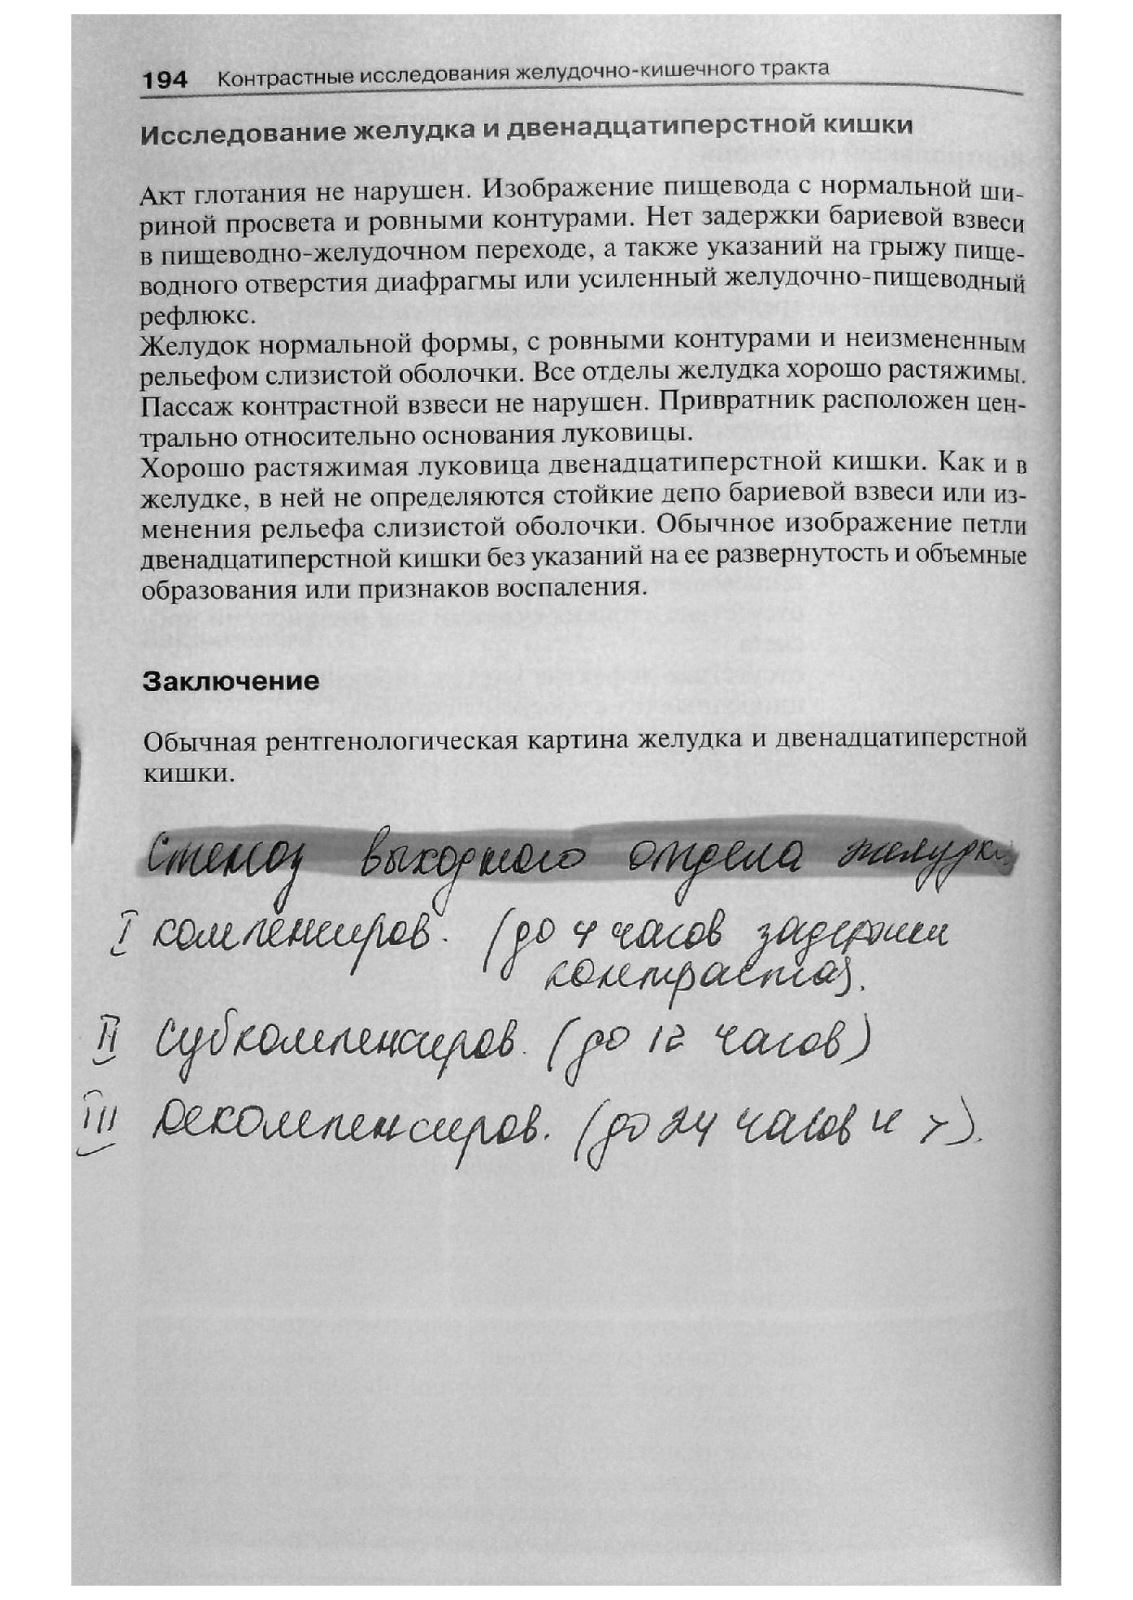 194 Контрастные исследования желудочно-кишечного тракта
Исследование желудка и двенадцатиперстной кишки
Акт глотания не нарушен. Изображение пищевода с нормальной ши-
риной просвета и ровными контурами. Нет задержки бариевой взвеси
в пищеводно-желудочном переходе, а также указаний на грыжу пище-
водного отверстия диафрагмы или усиленный желудочно-пищеводный
рефлюкс.
Желудок нормальной формы, с ровными контурами и неизмененным
рельефом слизистой оболочки. Все отделы желудка хорошо растяжимы.
Пассаж контрастной взвеси не нарушен. Привратник расположен цен-
трально относительно основания луковицы.
Хорошо растяжимая луковица двенадцатиперстной кишки. Как и в
желудке, в ней не определяются стойкие депо бариевой взвеси или из-
менения рельефа слизистой оболочки. Обычное изображение петли
двенадцатиперстной кишки без указаний на ее развернутость и объемные
образования или признаков воспаления.
Заключение
Обычная рентгенологическая картина желудка и двенадцатиперстной
кишки.
Стеноз выходного отдела желудка
I компенсиров. (до 4 часов задержки
контраста).
II субкомпенсиров. (до 12 часов)
III декомпенсиров. (до 24 часов и >).